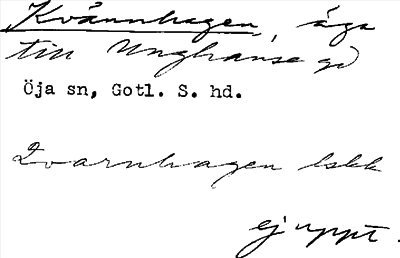 Kvännhagen, äga
till Unghanse gd
Öja sn, Gotl. S. hd.
Qvarnhagen lskk
ej uppt.